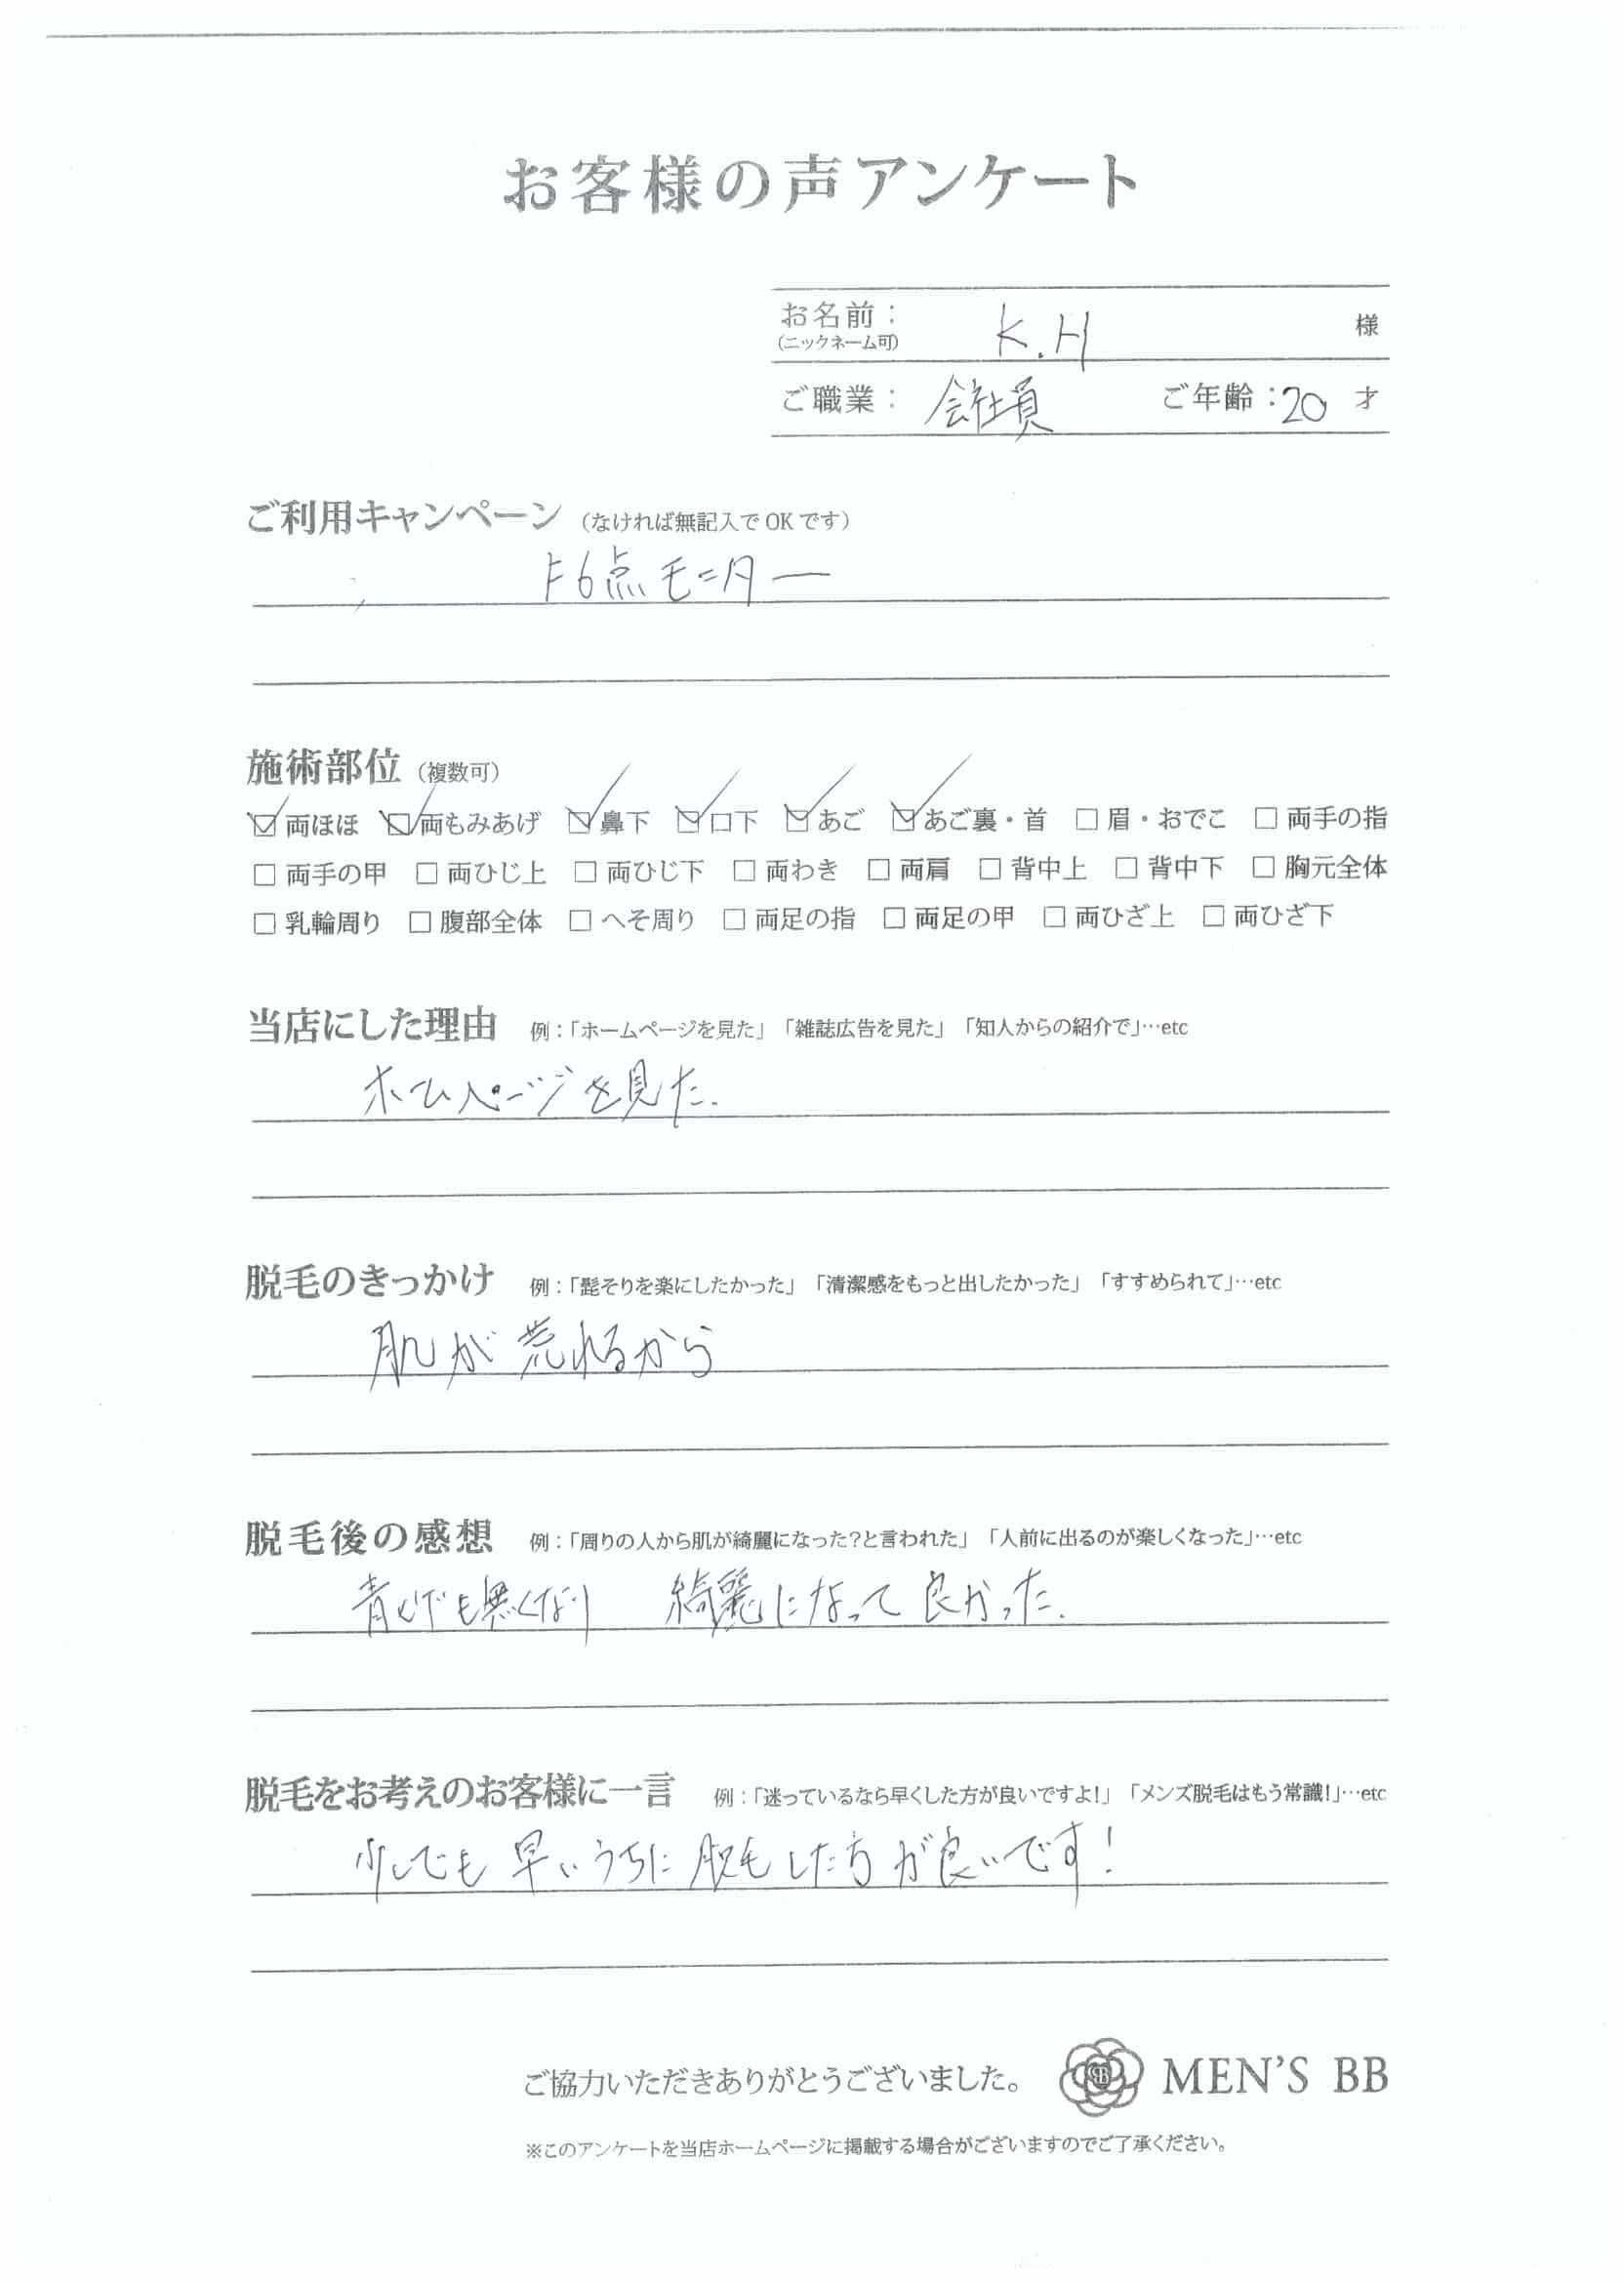 お客様の声アンケート
お名前： K.H 様
(ニックネーム可)
ご職業： 会社員 ご年齢：20 才
ご利用キャンペーン （なければ無記入でOKです）
6点モニター
施術部位 （複数可）
☑両ほほ ☑両もみあげ ☑鼻下 ☑口下 ☑あご ☑あご裏・首 □眉・おでこ □両手の指
□両手の甲 □両ひじ上 □両ひじ下 □両わき □両肩 □背中上 □背中下 □胸元全体
□乳輪周り □腹部全体 □へそ周り □両足の指 □両足の甲 □両ひざ上 □両ひざ下
当店にした理由 例：「ホームページを見た」「雑誌広告を見た」「知人からの紹介で」…etc
ホームページを見た.
脱毛のきっかけ 例：「髭そりを楽にしたかった」「清潔感をもっと出したかった」「すすめられて」…etc
肌が荒れるから
脱毛後の感想 例：「周りの人から肌が綺麗になった？と言われた」「人前に出るのが楽しくなった」…etc
青ヒゲも無くなり 綺麗になって良かった.
脱毛をお考えのお客様に一言 例：「迷っているなら早くした方が良いですよ！」「メンズ脱毛はもう常識！」…etc
少しでも早いうちに脱毛した方が良いです！
ご協力いただきありがとうございました。 MEN'S BB
※このアンケートを当店ホームページに掲載する場合がございますのでご了承ください。